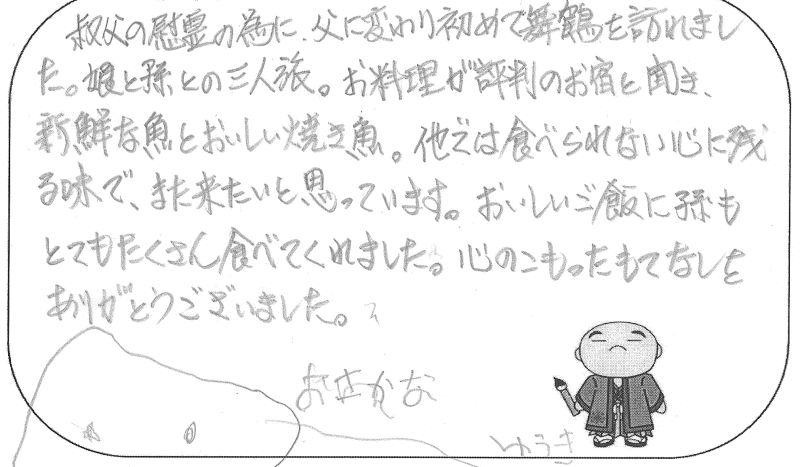 叔父の慰霊の為に、父に変わり初めて舞鶴を訪れまし
た。娘と孫との三人旅。お料理が評判のお宿と聞き、
新鮮な魚とおいしい焼き魚。他では食べられない心に残
る味で、また来たいと思っています。おいしいご飯に孫も
とてもたくさん食べてくれました。心のこもったもてなしを
ありがとうございました。
おさかな
ゆうき